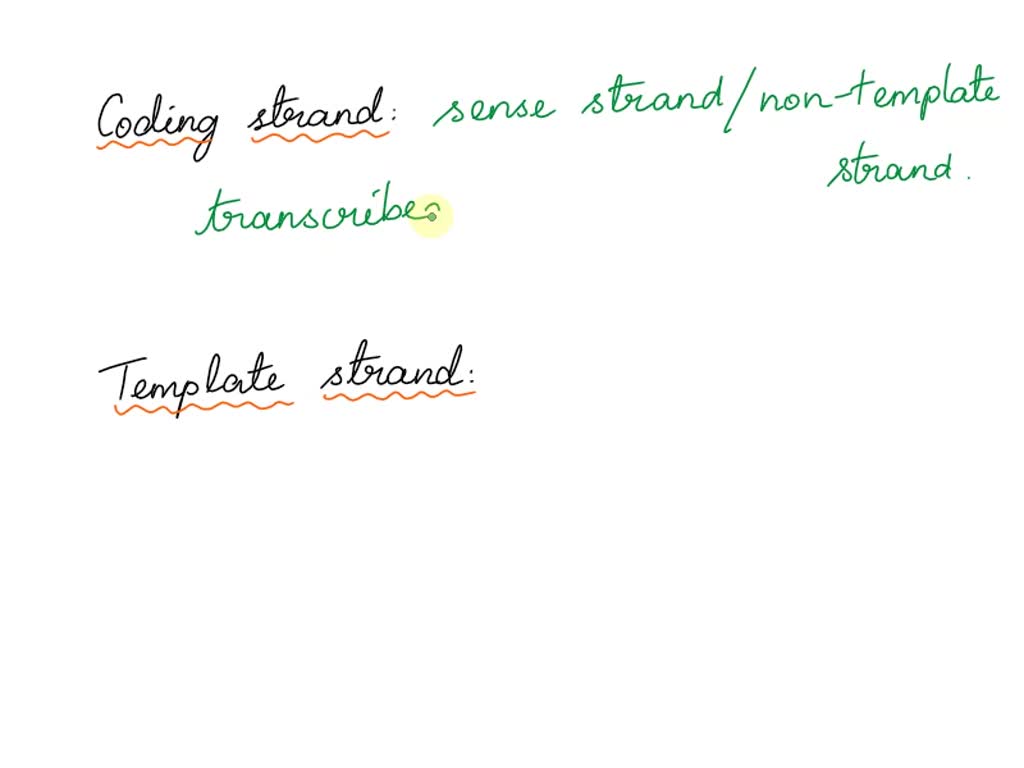 Coding strand: sense strand/non-template
strand.
transcribe
Template strand: